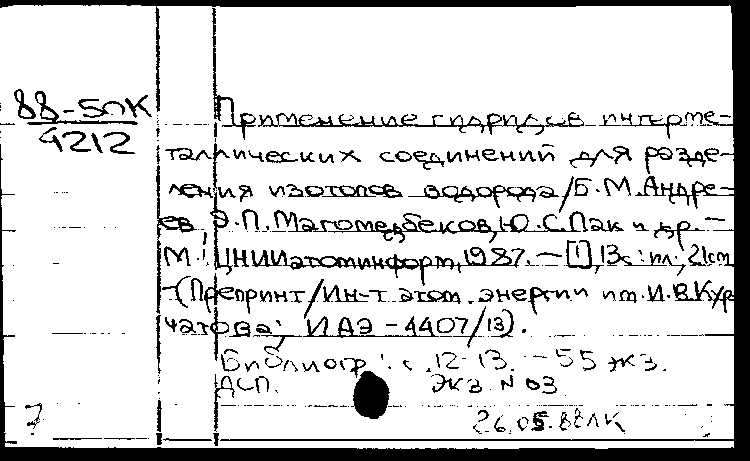 88-5ПК
4212
Применение гидридов интерме-
таллических соединений для разде-
ления изотопов водорода/Б.М.Андре-
ев, Э.П.Магомедбеков, Ю.С.Пак и др. –
М.: ЦНИИатоминформ, 1987. – [1], 13с: ил.; 21см
– (Препринт/Ин-т атом. энергии им. И.В.Кур
чатова; ИАЭ – 4407/13).
Библиогр.: с. 12-13. – 55 экз.
ДСП. Экз. N 03
26.05.88ЛК
7